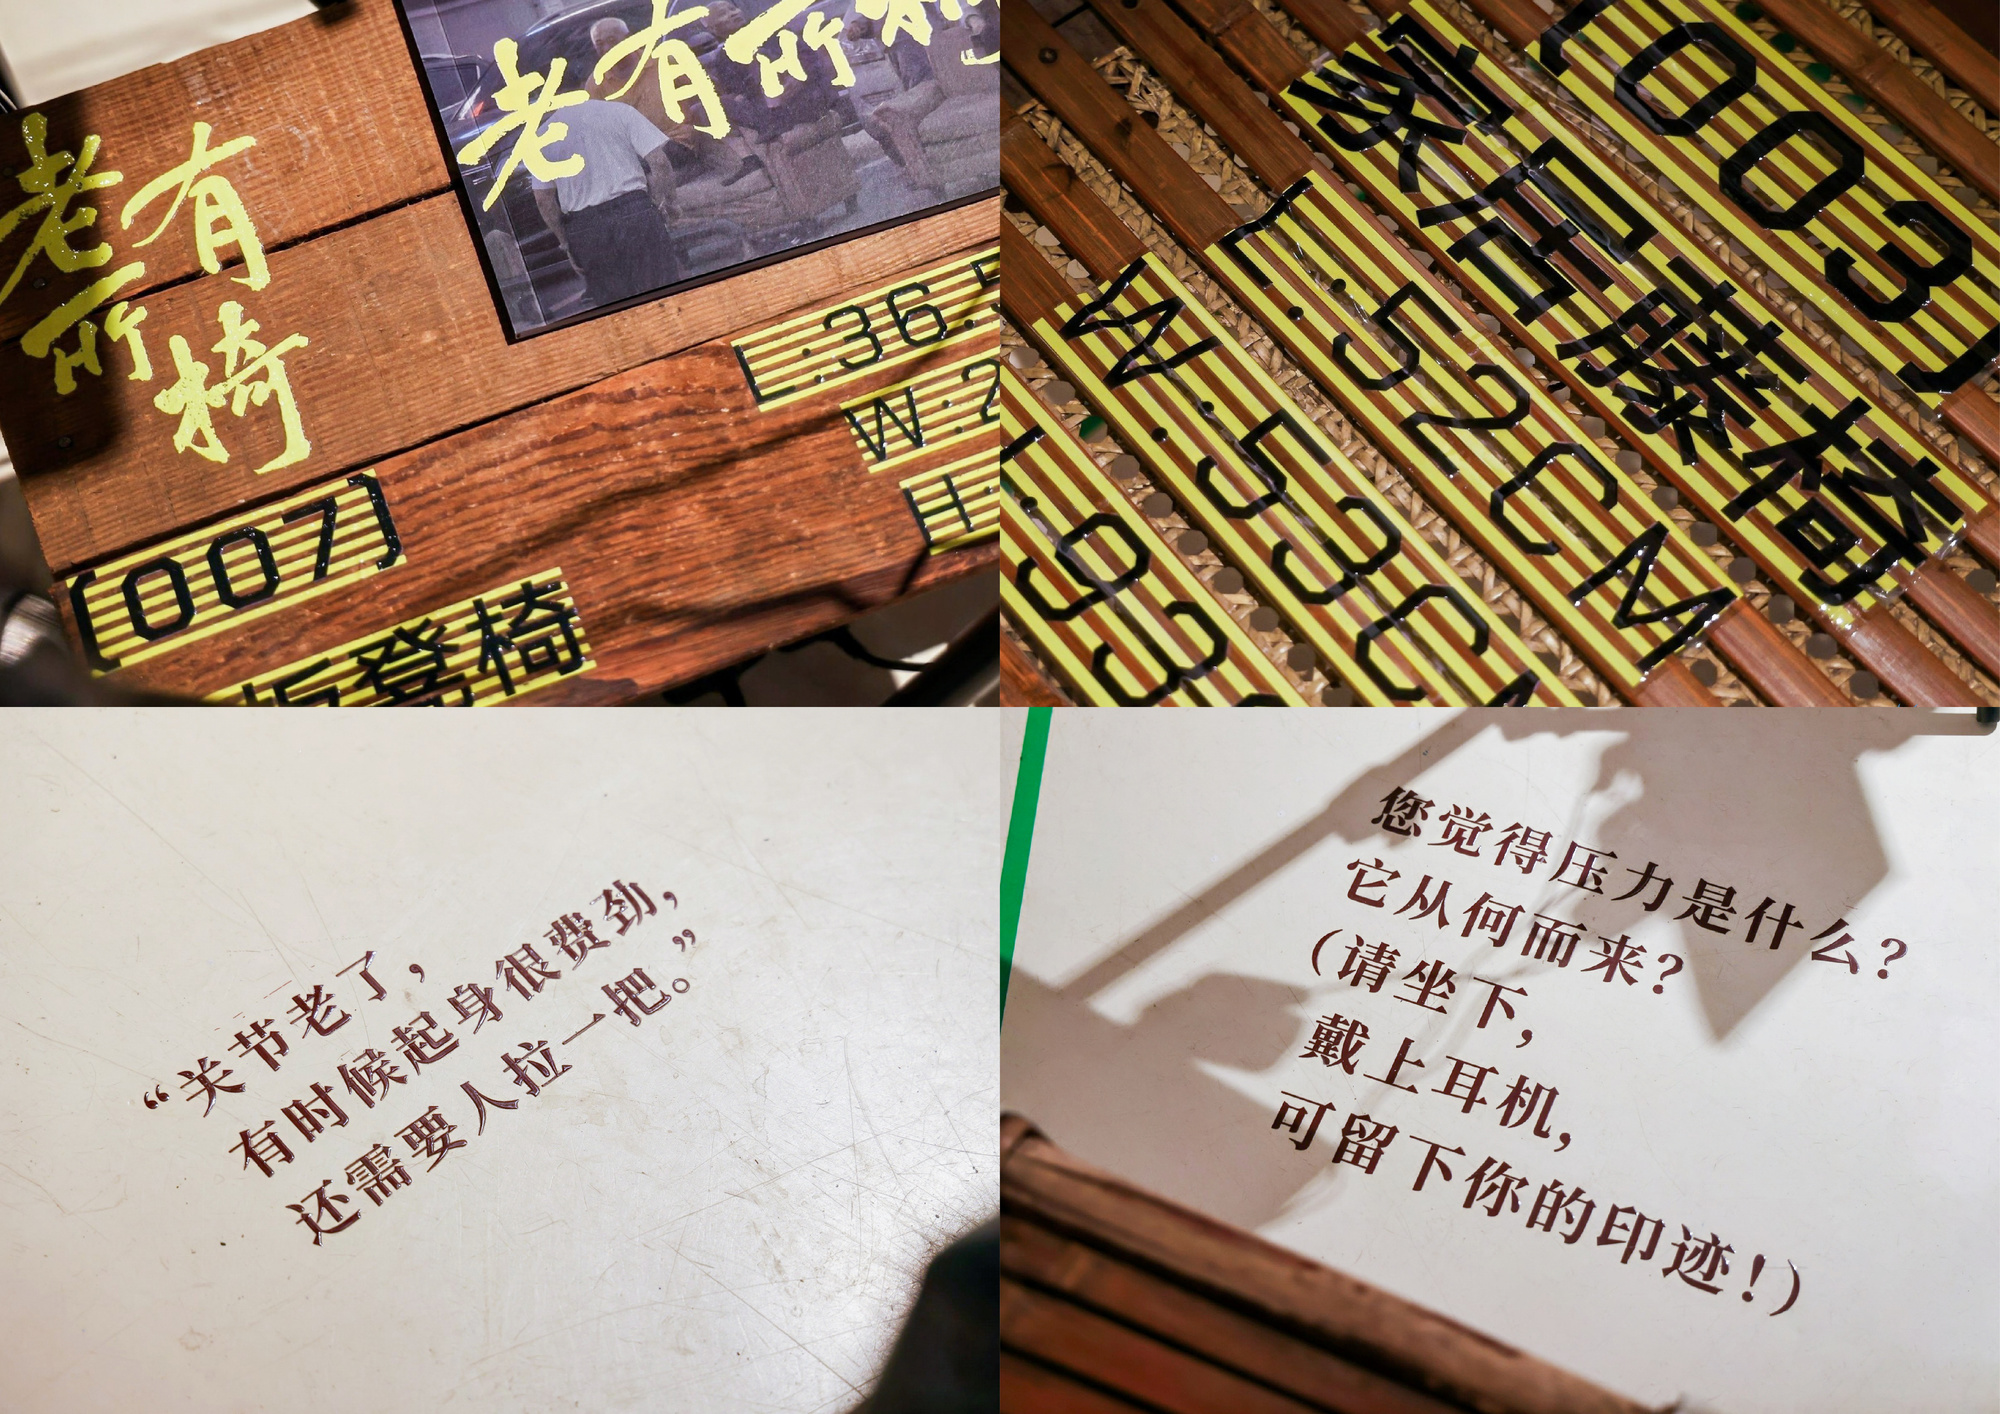 老有
所椅
老有所椅
[007]
折凳椅
L:36.5
W:2
H:
[003]
L:52CM
W:53C
“关节老了,
有时候起身很费劲,
还需要人拉一把。”
您觉得压力是什么?
它从何而来?
(请坐下,
戴上耳机,
可留下你的印迹!)